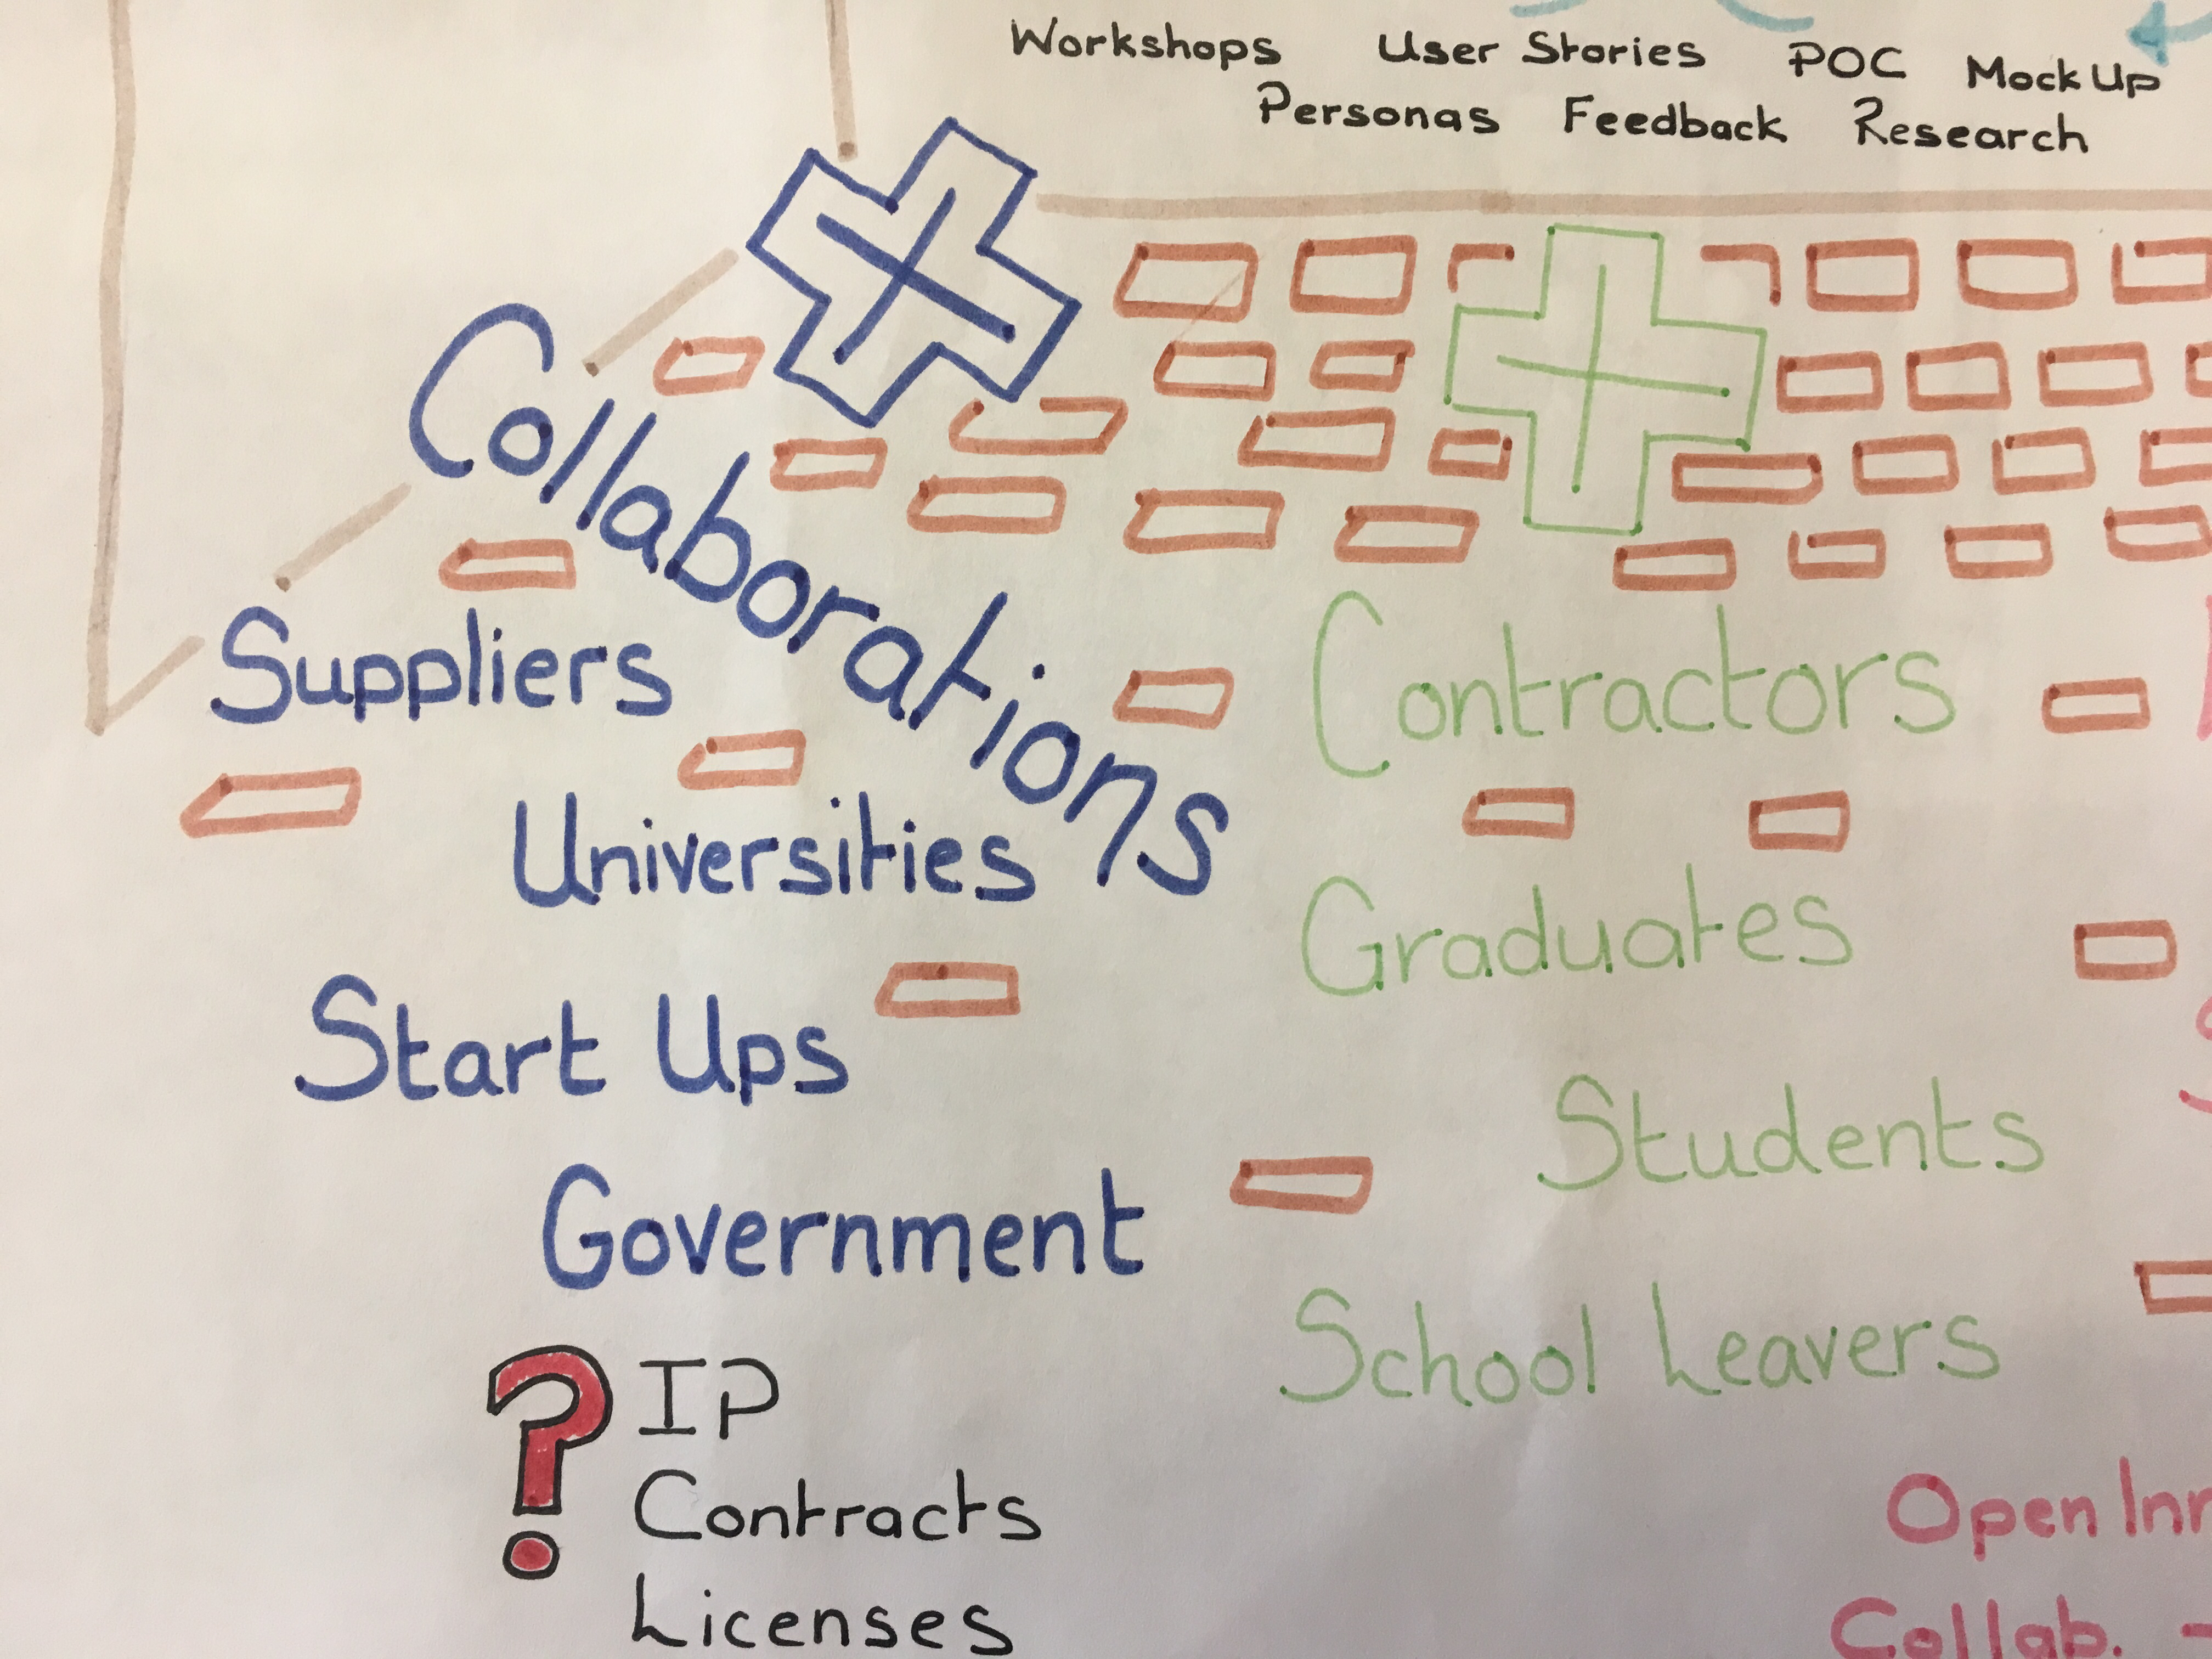 Workshops User Stories POC Mock Up
Personas Feedback Research
Collaborations
Suppliers
Universities
Start Ups
Government
? IP
Contracts
Licenses
Contractors
Graduates
Students
School Leavers
Open
Collab.